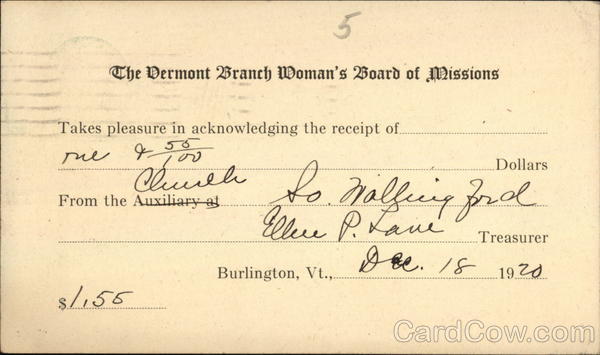 5
The Vermont Branch Woman's Board of Missions
Takes pleasure in acknowledging the receipt of
one & 55/100 Dollars
Church
From the Auxiliary at So. Wallingford
Ellen P. Lane Treasurer
Burlington, Vt., Dec. 18 1920
$1.55
CardCow.com